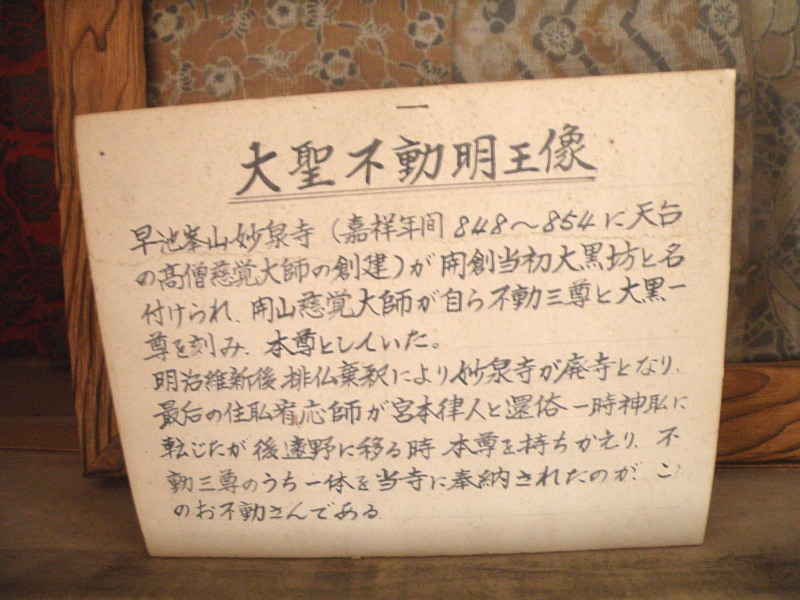 大聖不動明王像
早池峯山妙泉寺（嘉祥年間848～854に天台
の高僧慈覚大師の創建）が開創当初大黒坊と名
付けられ、開山慈覚大師が自ら不動三尊と大黒一
尊を刻み、本尊としていた。
明治維新後排仏棄釈により妙泉寺が廃寺となり、
最后の住私宥応師が宮本律人と還俗一時神私に
転じたが後遠野に移る時本尊を持ちかえり、不
動三尊のうち一体を当寺に奉納されたのが、こ
のお不動さんである